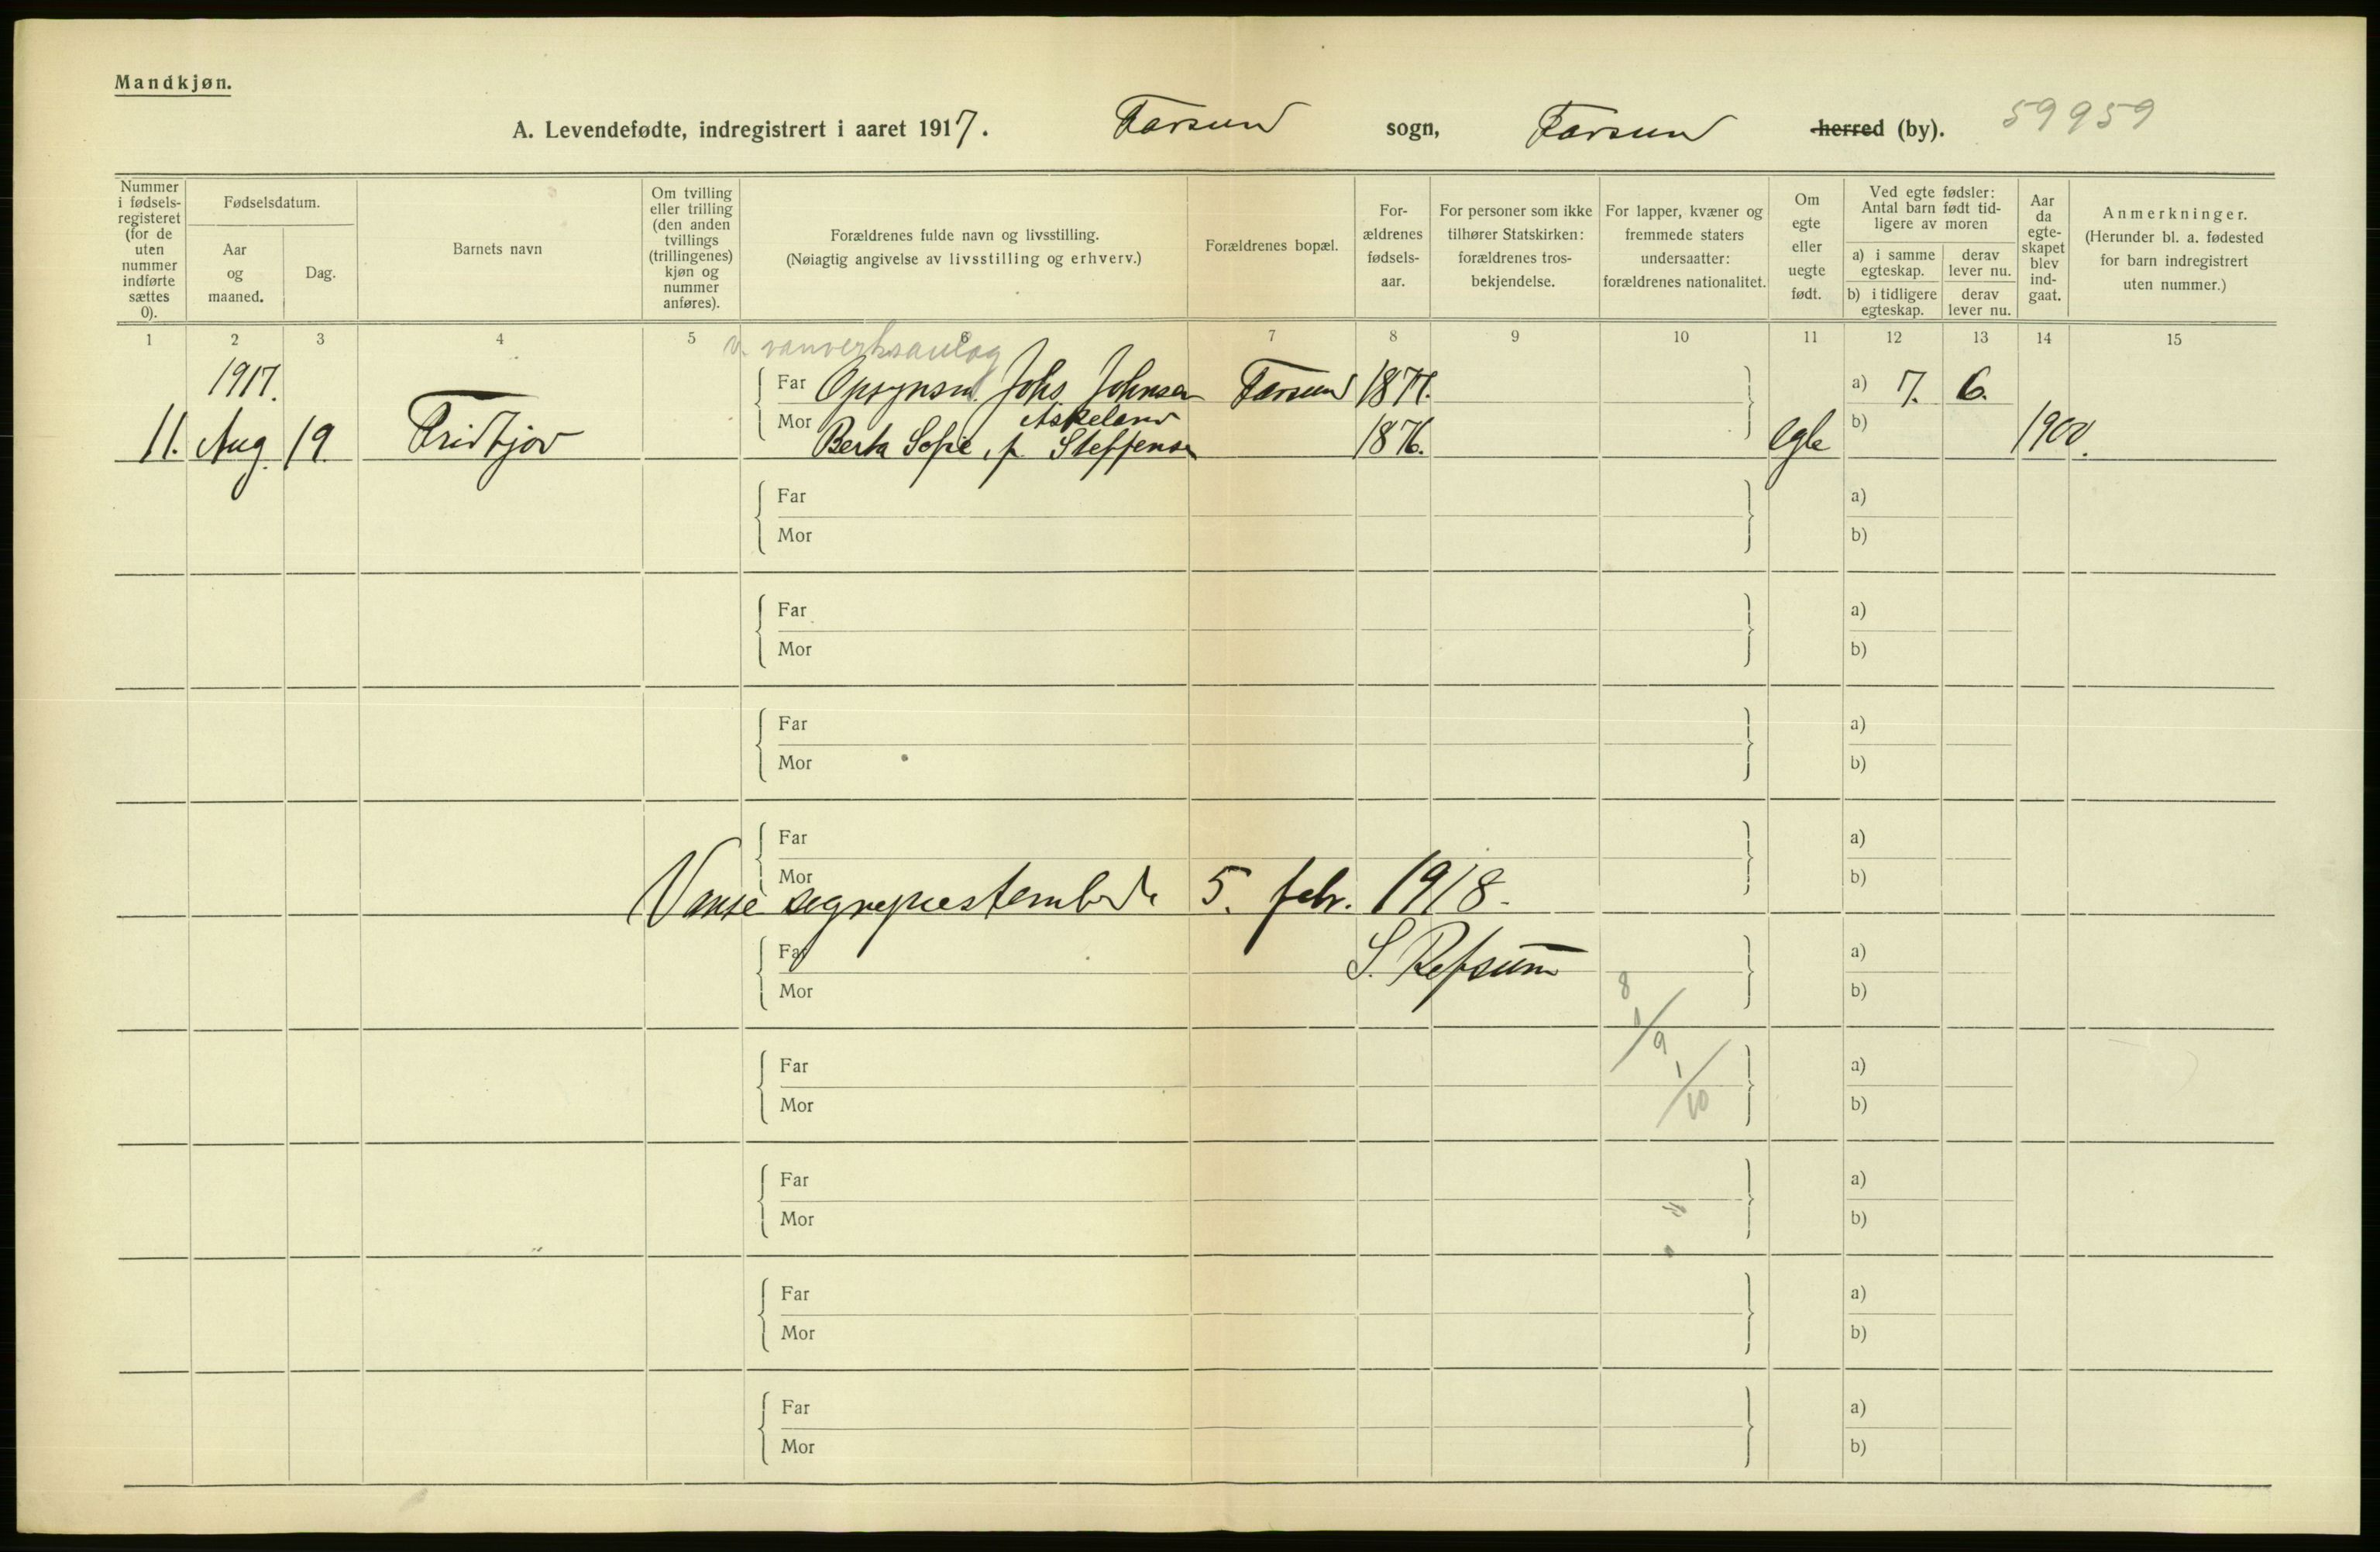 Mandkjøn.
A. Levendefødte, indregistrert i aaret 1917. Farsund sogn, Farsund herred (by). 59959
Nummer i fødsels-registeret (for de uten nummer indførte sættes 0).
Fødselsdatum.
Aar og maaned.
Dag.
Barnets navn
Om tvilling eller trilling (den anden tvillings (trillingenes) kjøn og nummer anføres).
Forældrenes fulde navn og livsstilling.
(Nøiagtig angivelse av livsstilling og erhverv.)
Forældrenes bopæl.
For-ældrenes fødsels-aar.
For personer som ikke tilhører Statskirken: forældrenes tros-bekjendelse.
For lapper, kvæner og fremmede staters undersaatter: forældrenes nationalitet.
Om egte eller uegte født.
Ved egte fødsler: Antal barn født tid-ligere av moren
a) i samme egteskap.
derav lever nu.
b) i tidligere egteskap.
derav lever nu.
Aar da egte-skapet blev ind-gaat.
Anmerkninger.
(Herunder bl. a. fødested for barn indregistrert uten nummer.)
1 2 3 4 5 6 7 8 9 10 11 12 13 14 15
v. vanverksanlæg
1917. Far Opsynsm. Johs Johnsen Farsund 1871. a) 7. 6.
Askeland
11. Aug. 19. Fridtjov Mor Berta Sofie, f. Steffensen 1876. egte b) 1900.
Far a)
Mor b)
Far a)
Mor b)
Far a)
Mor b)
Far a)
Mor b)
Vanse sogneprestembede 5. febr. 1918.
Far a)
S. Refsum
Mor b)
8
1/9
Far a)
1/10
Mor b)
Far a)
Mor b)
Far a)
Mor b)
Far a)
Mor b)